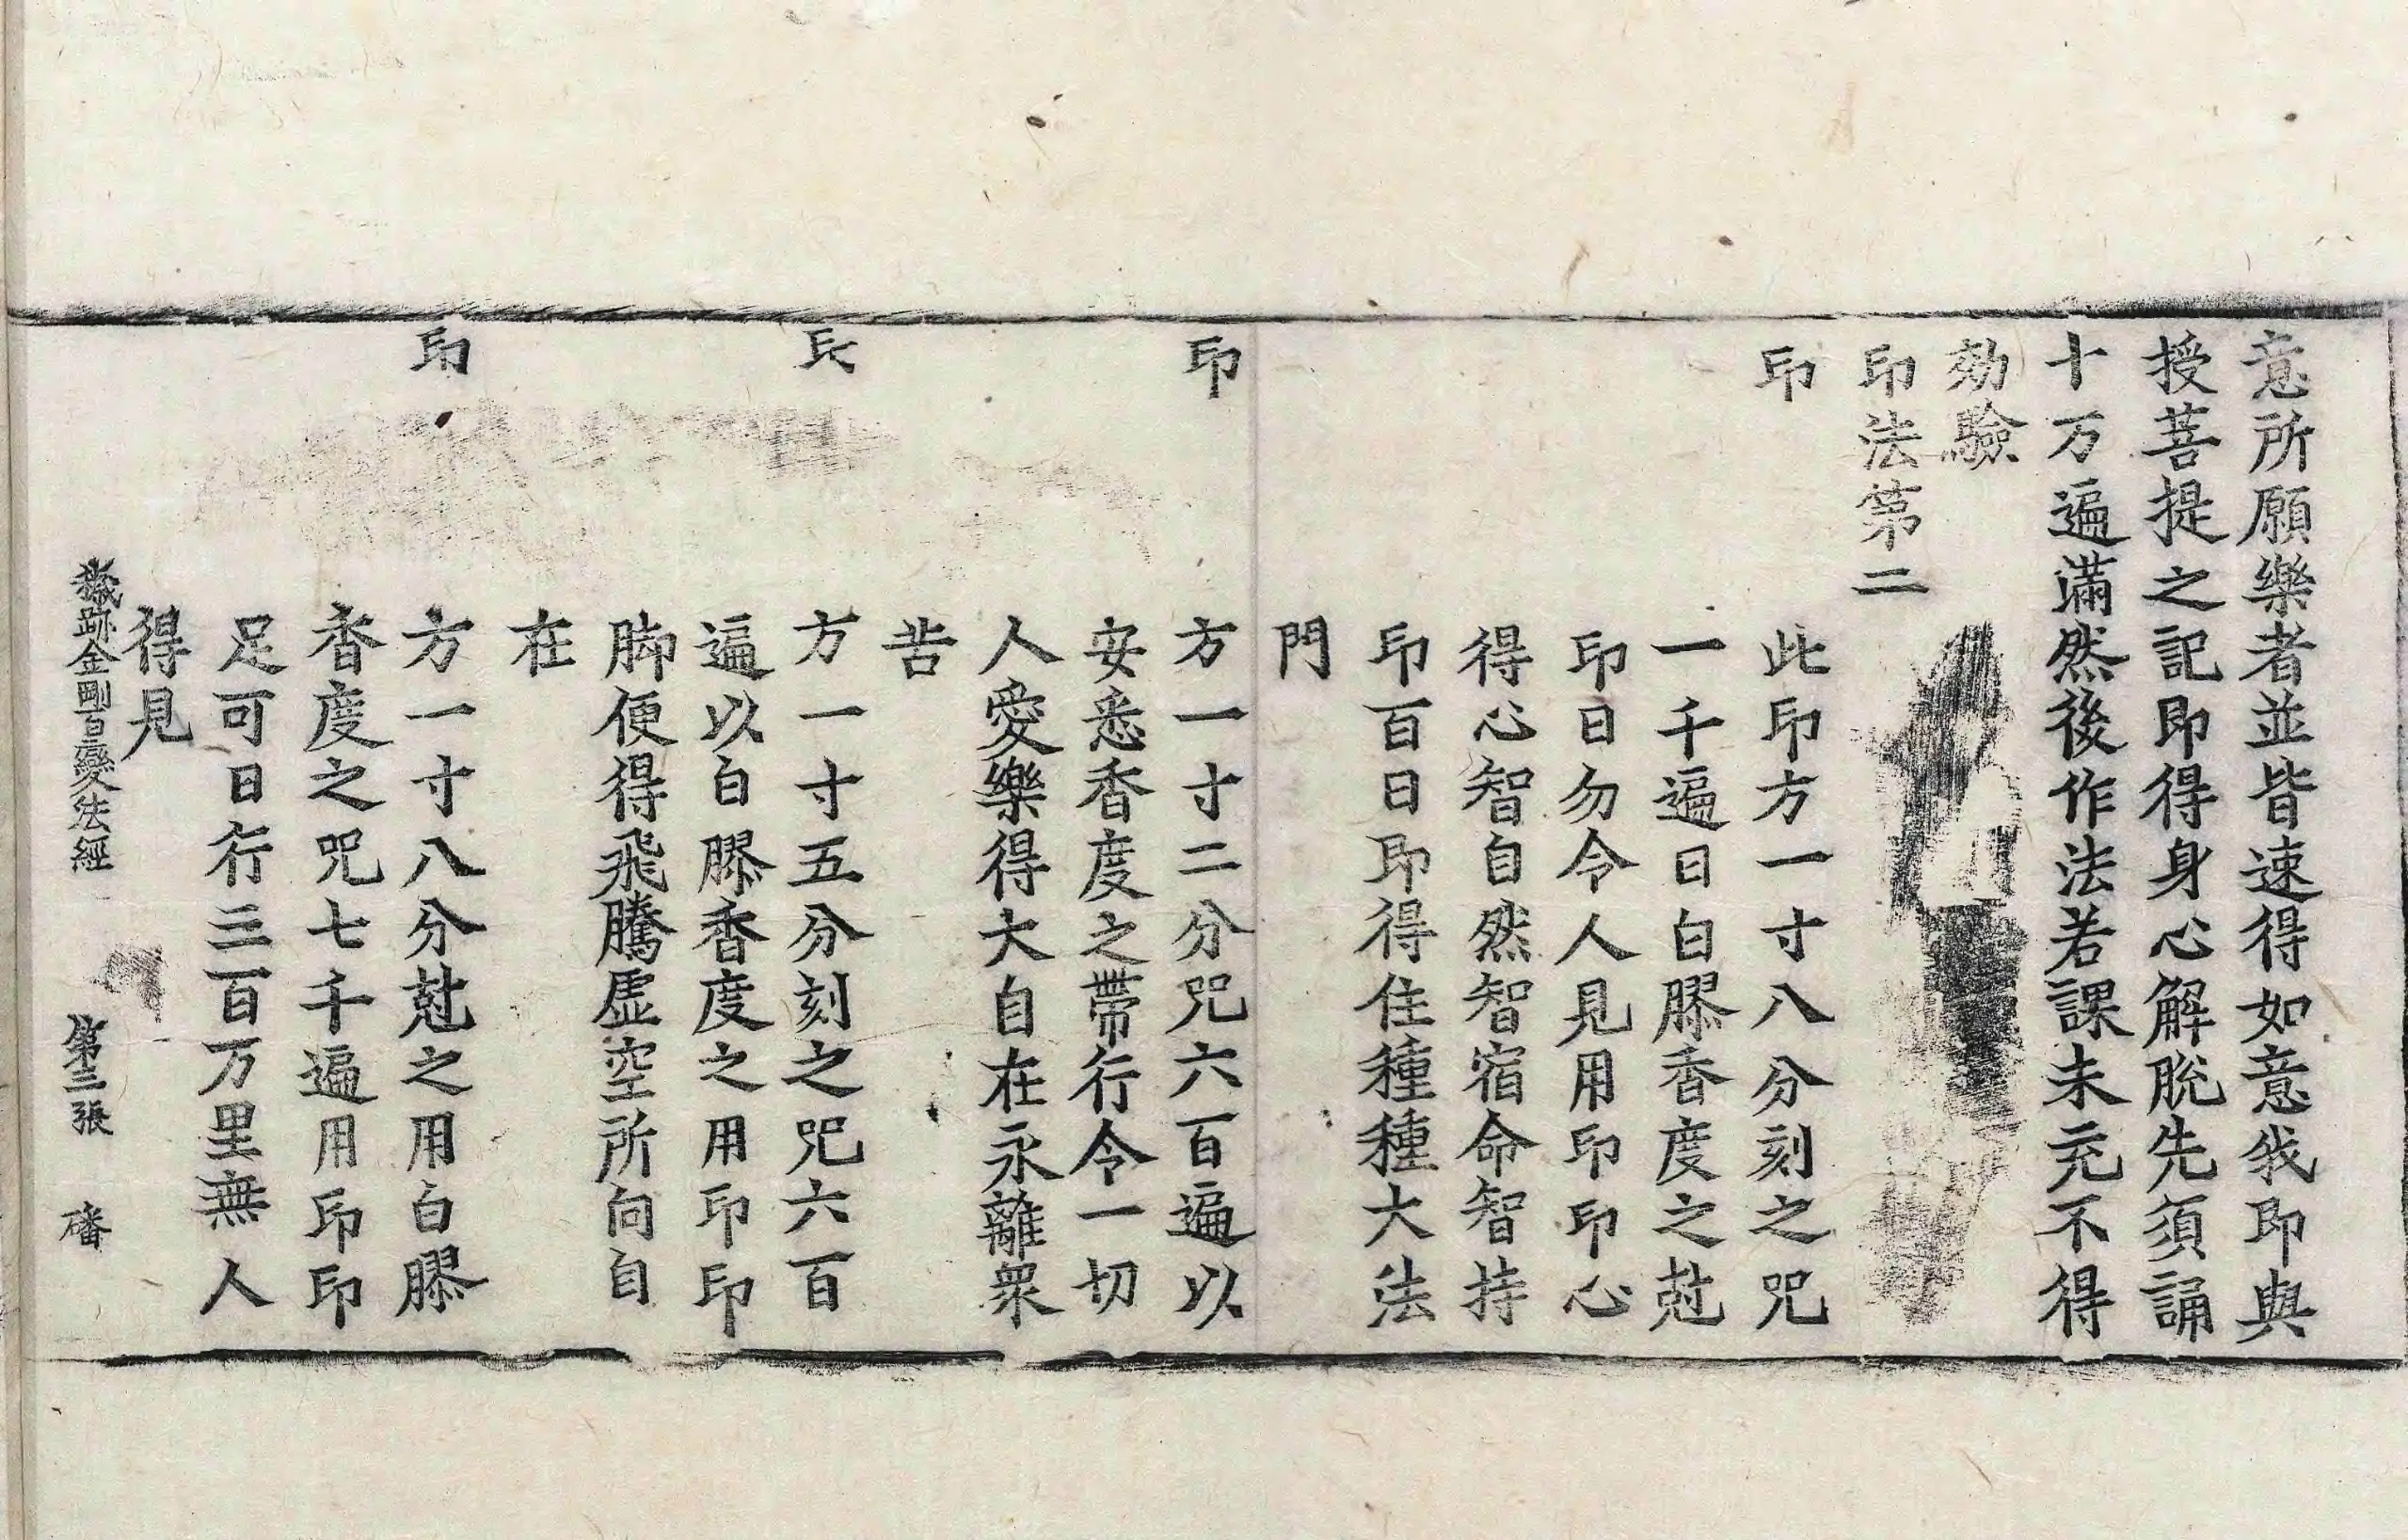 意所願樂者並皆速得如意我即與
授菩提之記即得身心解脫先須誦
十万遍滿然後作法若課未充不得
効驗
印法第二
印
此印方一寸八分刻之咒
一千遍日白膠香度之尅
印日勿令人見用印印心
得心智自然智宿命智持
印百日即得住種種大法
門
印
方一寸二分咒六百遍以
安悉香度之帶行令一切
人愛樂得大自在永離眾
苦
方一寸五分刻之咒六百
遍以白膠香度之用印印
脚便得飛騰虛空所向自
在
印
方一寸八分尅之用白膠
香度之咒七千遍用印印
足可日行三百万里無人
得見
穢跡金剛百變法經 第三張 磻